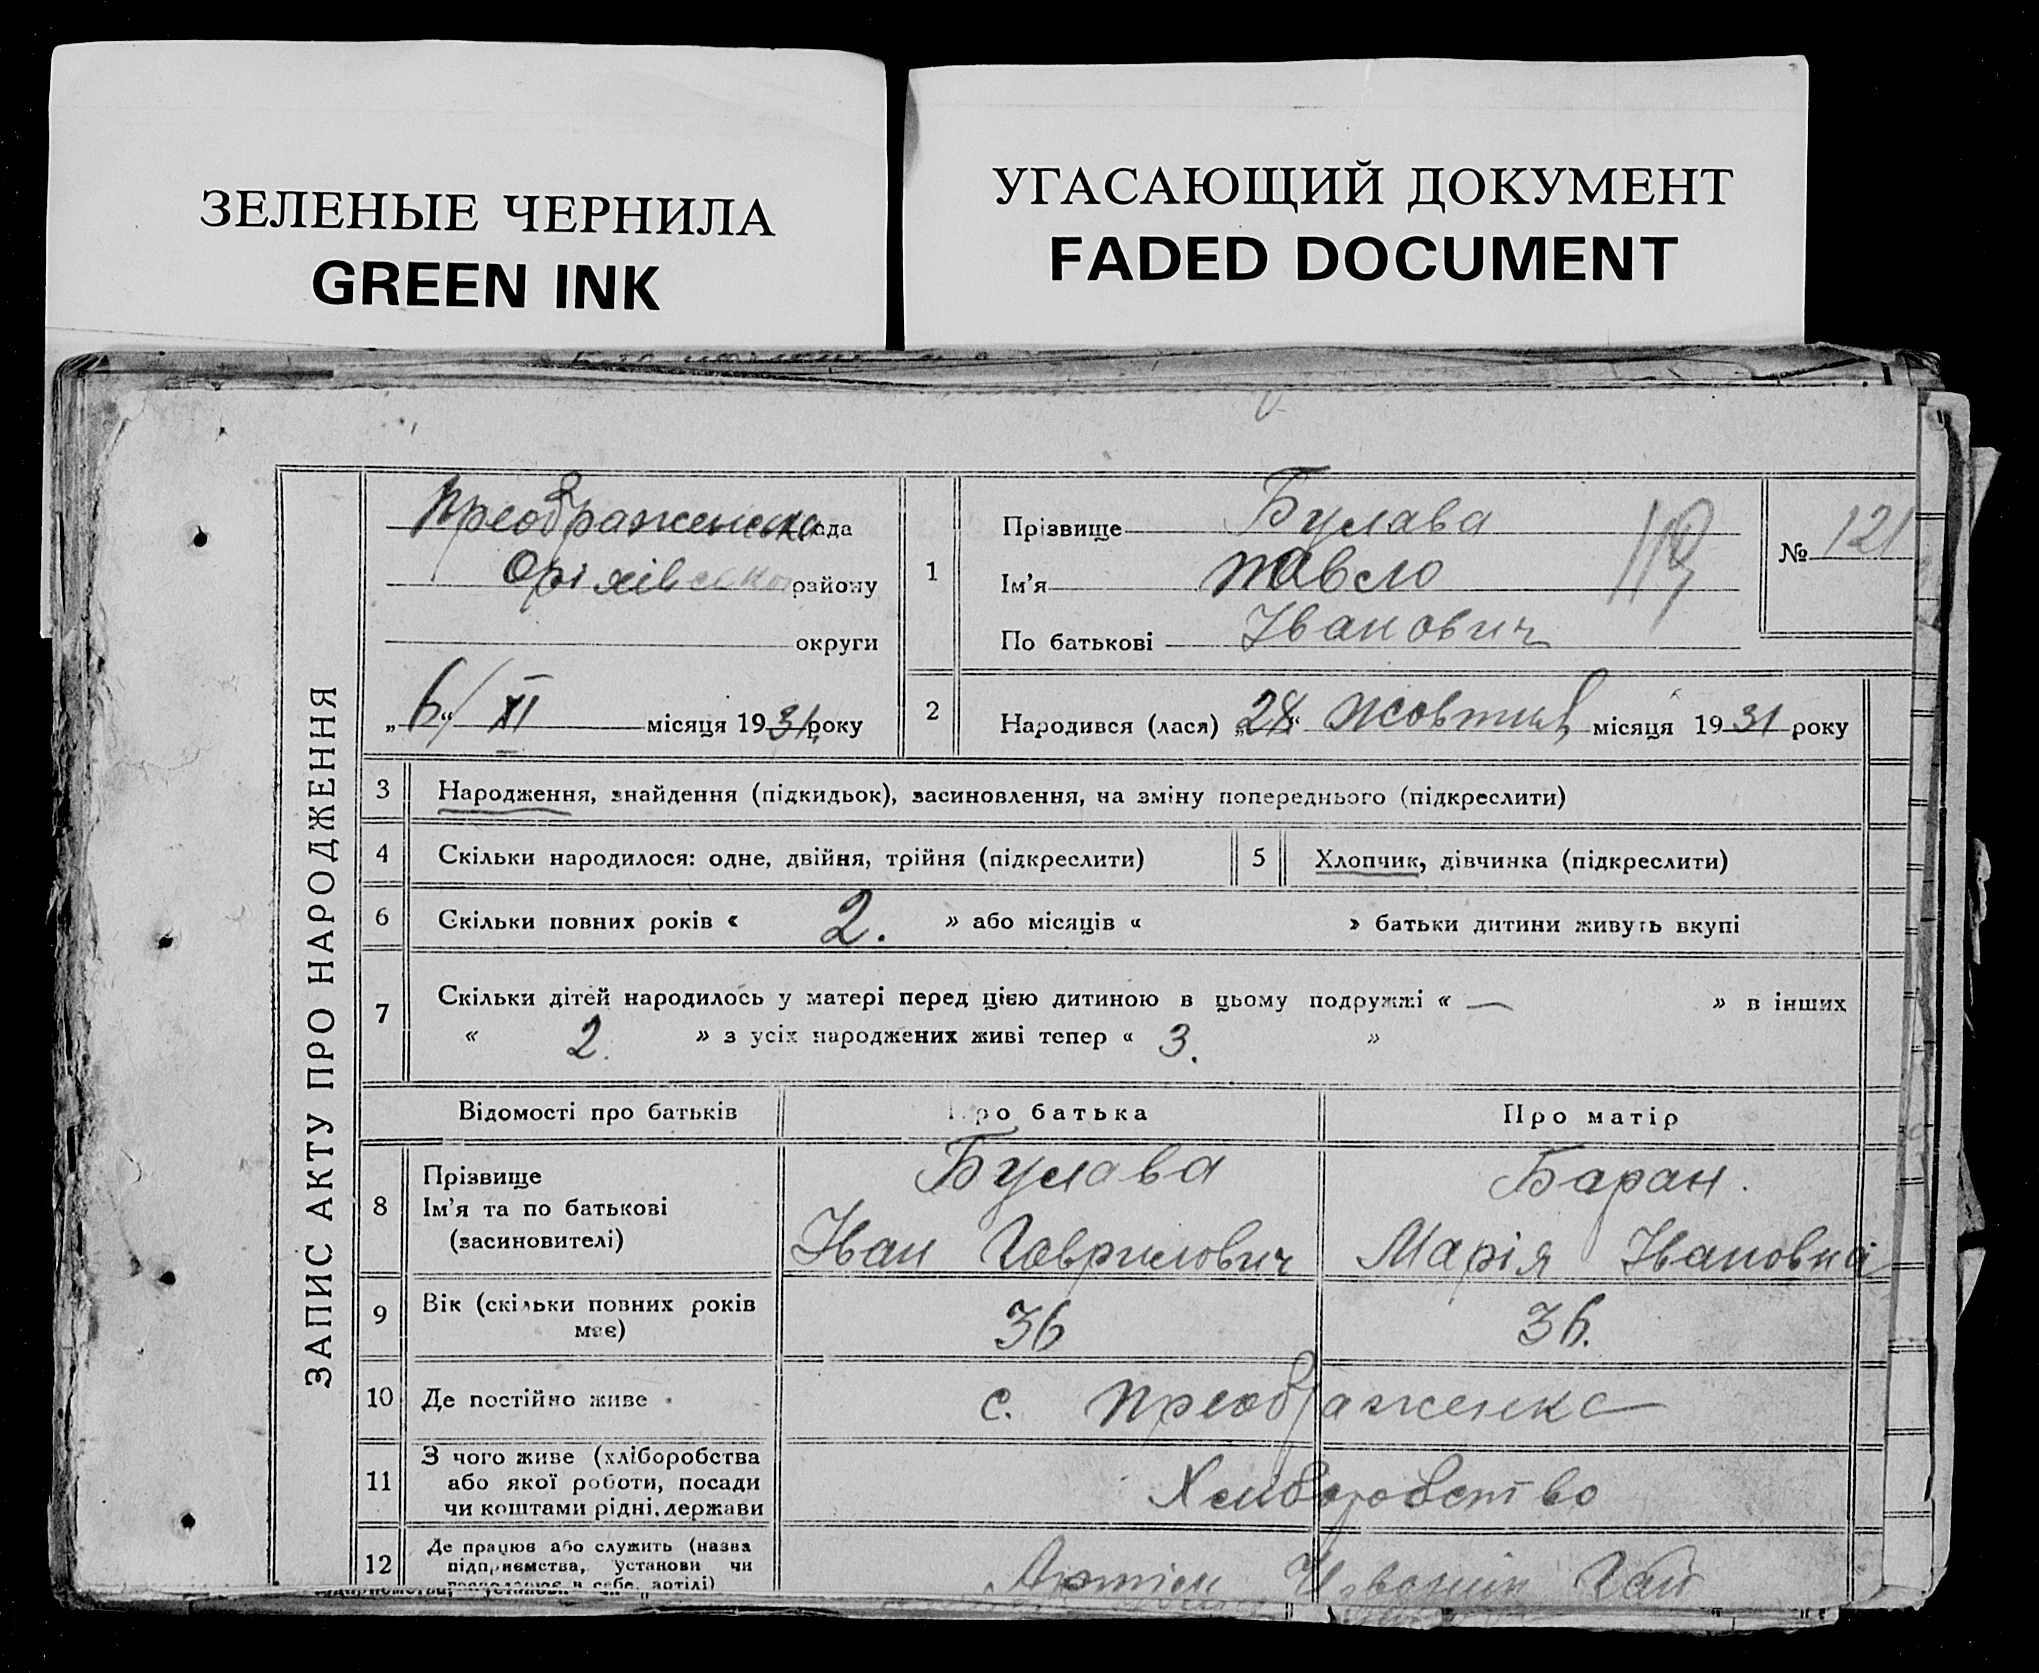 ЗЕЛЕНЫЕ ЧЕРНИЛА
GREEN INK
УГАСАЮЩИЙ ДОКУМЕНТ
FADED DOCUMENT
ЗАПИС АКТУ ПРО НАРОДЖЕННЯ
Преображенська рада
Оріхівського району
округи
„6“ XI місяця 1931 року
1
Прізвище Булава
Ім’я Павло
По батькові Іванович
№ 121
2
Народився (лася) „28“ Жовтня місяця 1931 року
3 Народження, знайдення (підкидьок), засиновлення, на зміну попереднього (підкреслити)
4 Скільки народилося: одне, двійня, трійня (підкреслити) 5 Хлопчик, дівчинка (підкреслити)
6 Скільки повних років « 2. » або місяців « » батьки дитини живуть вкупі
7 Скільки дітей народилось у матері перед цією дитиною в цьому подружжі « — » в інших
« 2. » з усіх народжених живі тепер « 3. »
Відомості про батьків Про батька Про матір
8 Прізвище Булава Баран.
Ім’я та по батькові
(засиновителі) Іван Гаврилович Марія Івановна
9 Вік (скільки повних років має) 36 36.
10 Де постійно живе с. Преображенка
11 З чого живе (хліборобства
або якої роботи, посади
чи коштами рідні, держави Хліборобство
12 Де працює або служить (назва
підприємства, установи чи
в себе, артілі) Артіль Червоний Гай